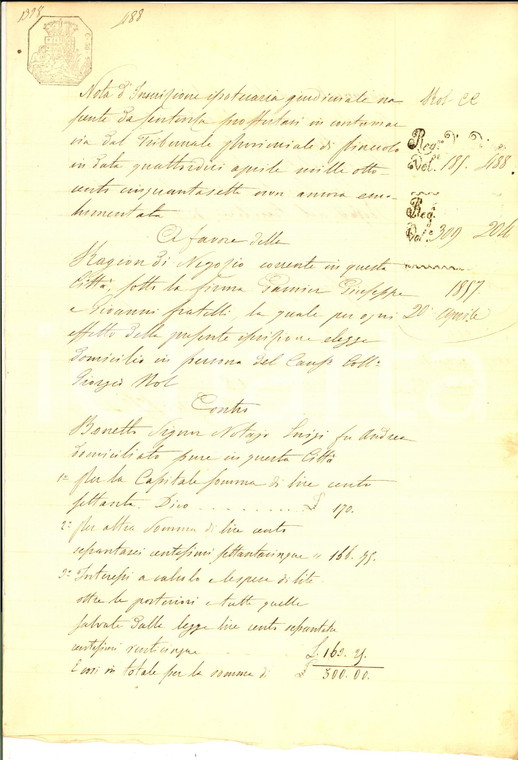 1188
Nota d'Inscrizione ipotecaria giudiziale na
sente da sentenza proffertasi in contumac
cia dal Tribunale provinciale di Pinerolo
in data quattordici aprile mille otto
cento cinquantasette non ancora emo
lumentata
A favore della
Ragion di Negozio corrente in questa
Città, sotto la firma Garnier Giuseppe
e Giovanni fratelli la quale per ogni
effetto della presente iscrizione elegge
domicilio in persona del Caus.o Coll.o
Giorgio
Contro
Benetto Signor Notajo Luigi fu Andrea
domiciliato pure in questa Città
1° Per la Capitale somma di lire cento
settanta. Dico . . . . . . . . . . £ 170.
2° Per altra somma di lire cento
centesimi settantacinque
3° Interessi a calcolo e le spese di lite
oltre le posteriori e tutte quelle
salvate dalla legge lire cento
centesimi venticinque
E così in totale per la somma di £ 500.00.
Reg.
Vol. 185. 1188
Reg.
Vol. 309 204
1857
20 aprile